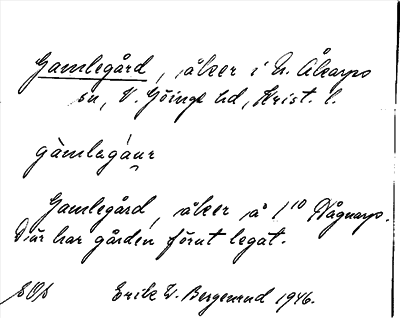 Gamlegård, åker i N. Åkarps
sn, V. Göinge hd, Krist. l.
gàmlagáur
Gamlegård, åker å 1/10 Vågnarp.
Där har gården förut legat.
SOS Erik W. Bergenrud 1946.